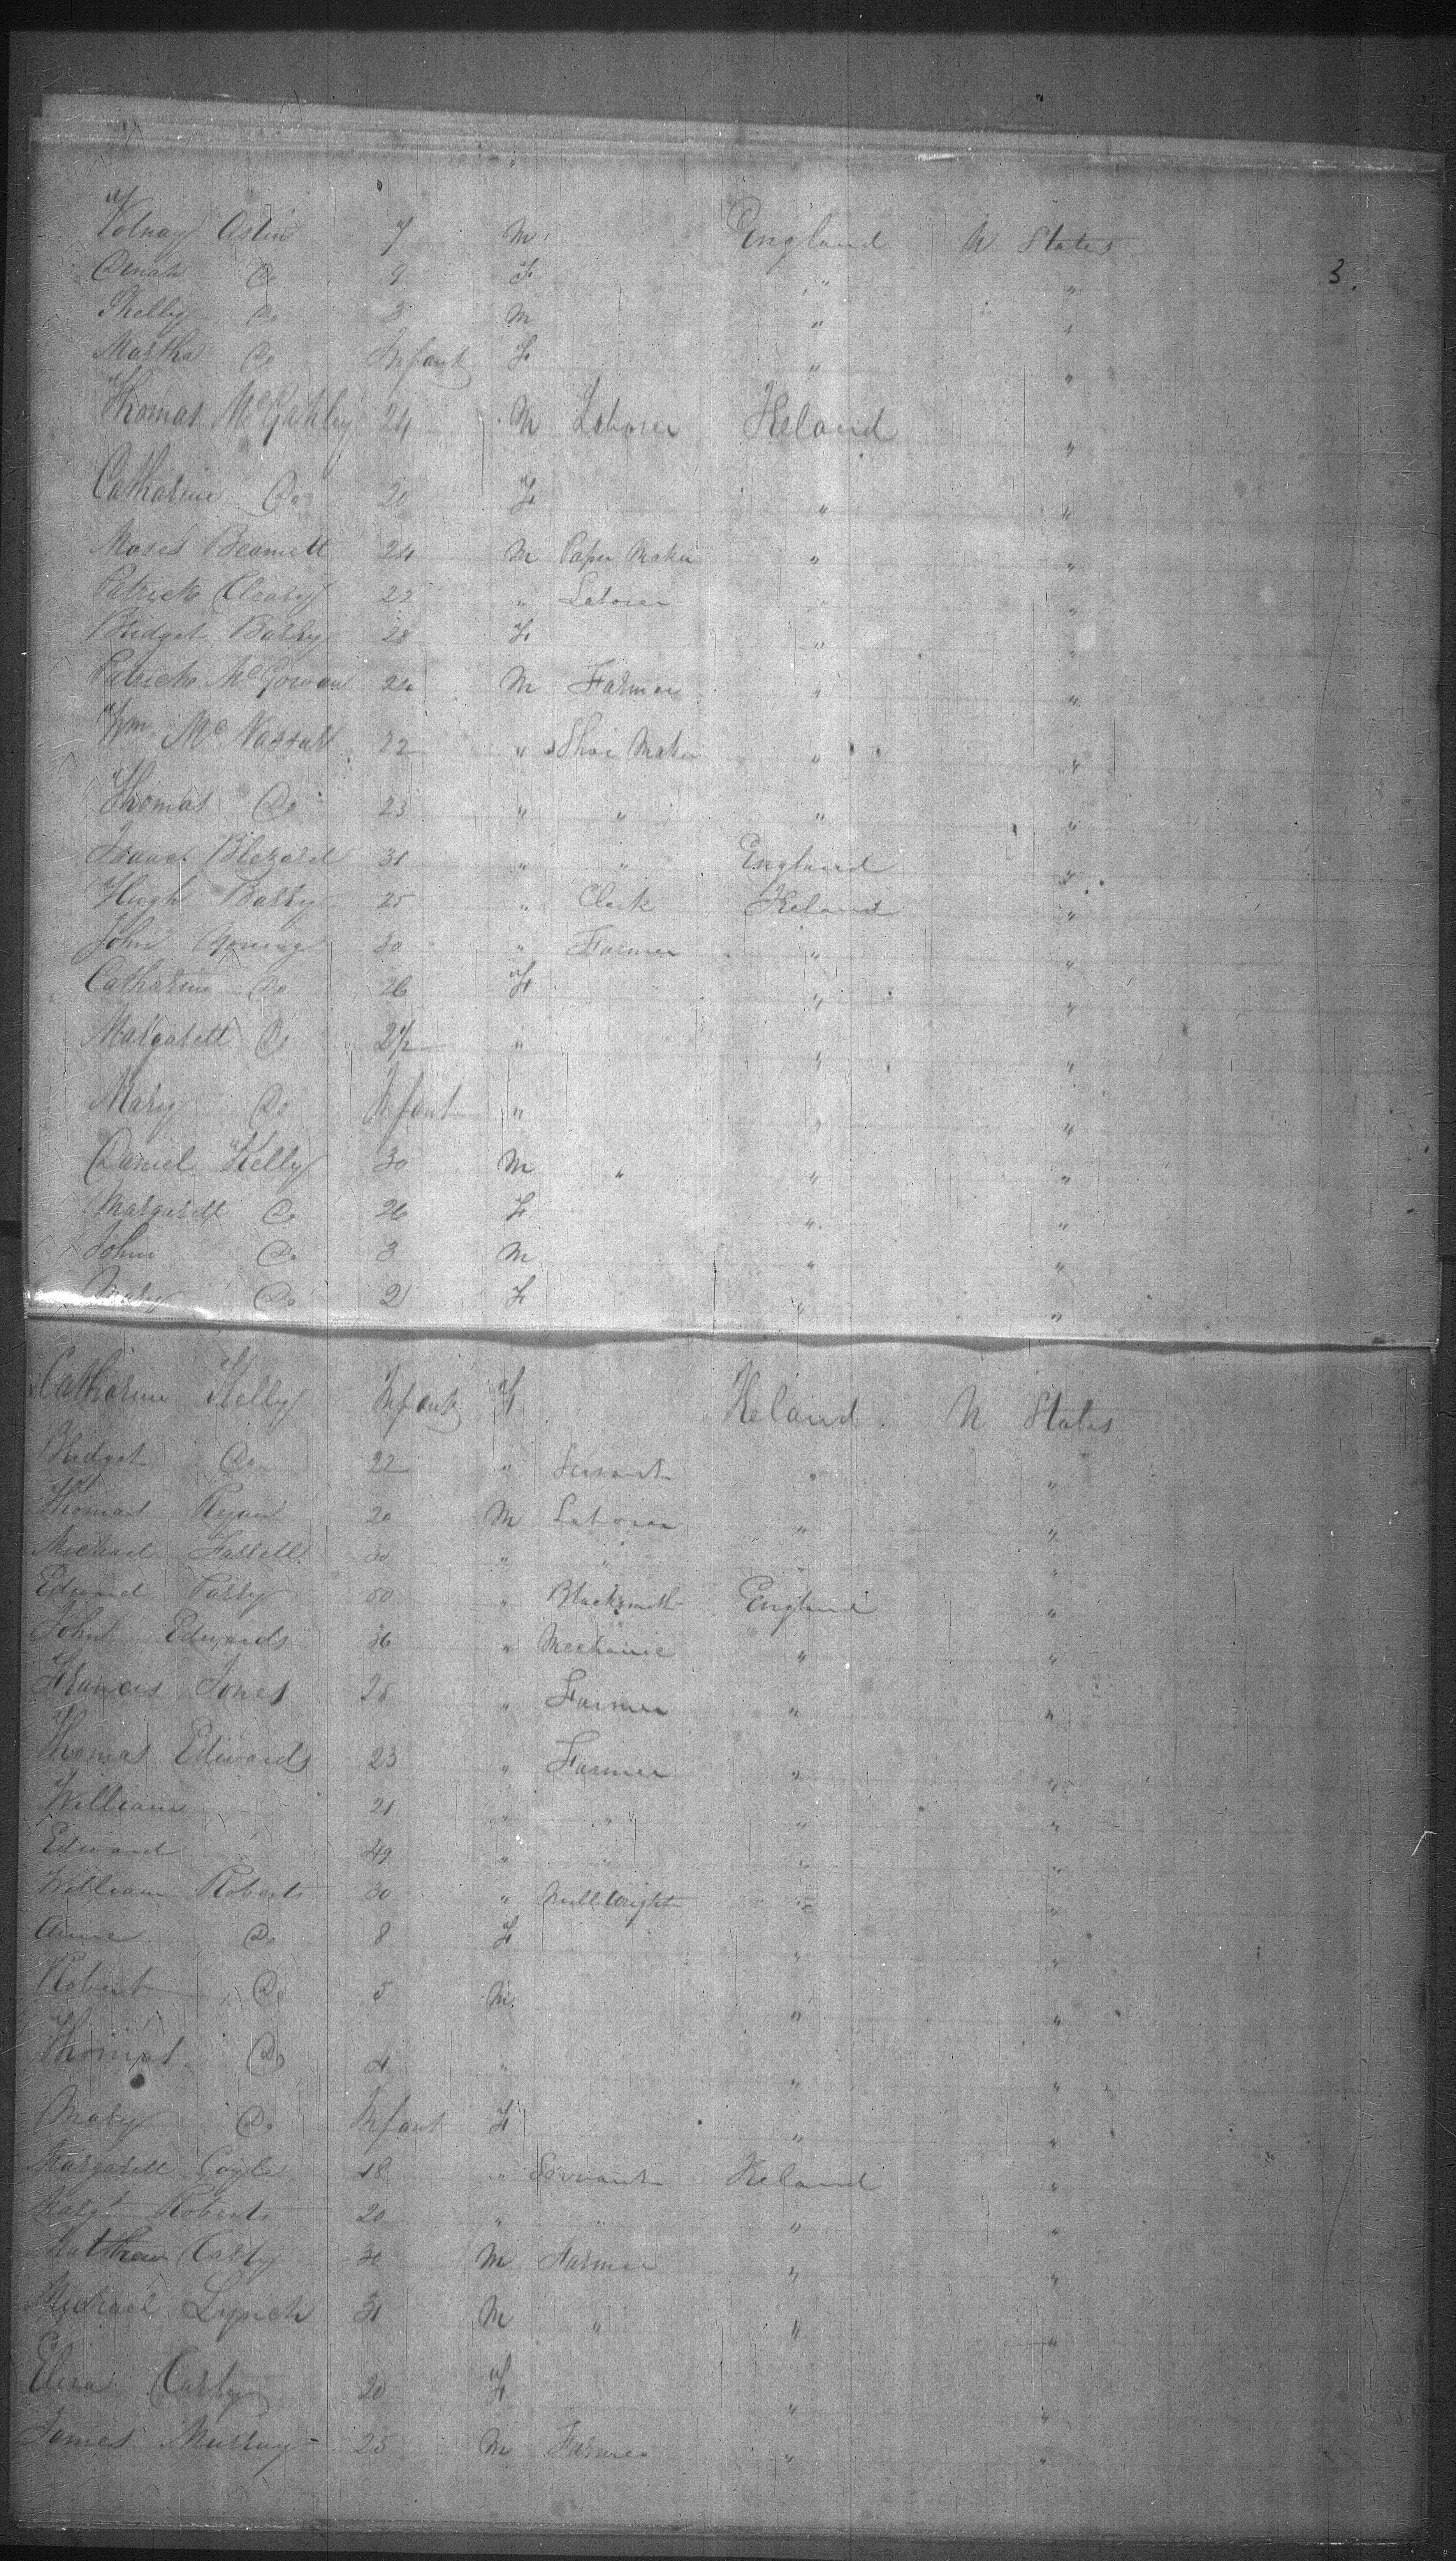 Volnay Astin 7 M England U States
Dinah Do 9 F " "
3.
Shelby Do 3 M " "
Martha Do Infant F " "
Thomas McGahley 24 M Laborer Ireland "
Catharine Do 20 F " "
Moses Beamett 24 M Paper Maker " "
Patrick Cleary 22 " Laborer " "
Bridget Barry 28 F " "
Patrick McGowan 24 M Farmer " "
Wm Mc Nassar 22 " Shoe Maker " "
Thomas Do 23 " " " "
Isaac Blezard 31 " " England "
Hugh Barry 25 " Clerk Ireland "
John Young 30 " Farmer " "
Catharine Do 26 F " "
Margarett Do 2½ " " "
Mary Do Infant " " "
Daniel Kelly 30 M " " "
Margarett Do 26 F " "
John Do 3 M " "
Mary Do 2 F " "
Catharine Kelly Infant F Ireland U States
Bridget Do 22 " Servant " "
Thomas Ryan 20 M Laborer " "
Michael Farrell 30 " " " "
Edward Parry 50 " Blacksmith England "
John Edwards 36 " Mechanic " "
Francis Jones 28 " Farmer " "
Thomas Edwards 23 " Farmer " "
William 21 " " " "
Edward 49 " " " "
William Roberts 30 " Mill Wright " "
Anne Do 8 F " "
Robert Do 5 M " "
Thomas Do 4 " " "
Mary Do Infant F " "
Margarett Coyle 18 " Servant Ireland "
Margt Roberts 20 " " " "
Matthew Carty 30 M Farmer " "
Michael Lynch 31 M " " "
Eliza Carty 20 F " "
James Murray 25 M Farmer " "